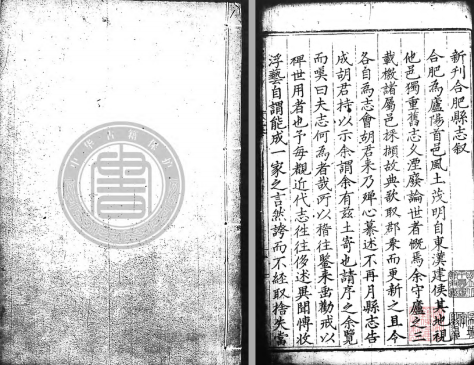 新刊合肥縣志叙
合肥為廬陽首邑風土茂明自東漢建侯其地視
他邑獨重舊志久湮廢論世者慨焉余守廬之三
載檄諸屬邑採擷故典欲取郡乗而更新之且令
各自為志會胡君来乃殫心纂述不再月縣志告
成胡君持以示余謂余有兹土寄也請序之余覽
而嘆曰夫志何為者哉所以稽往鑒来齿勸戒以
禆世用者也予每觀近代志徃徃侈述異聞慱收
浮藝自謂能成一家之言然誇而不經取捨失當
中华古籍保护